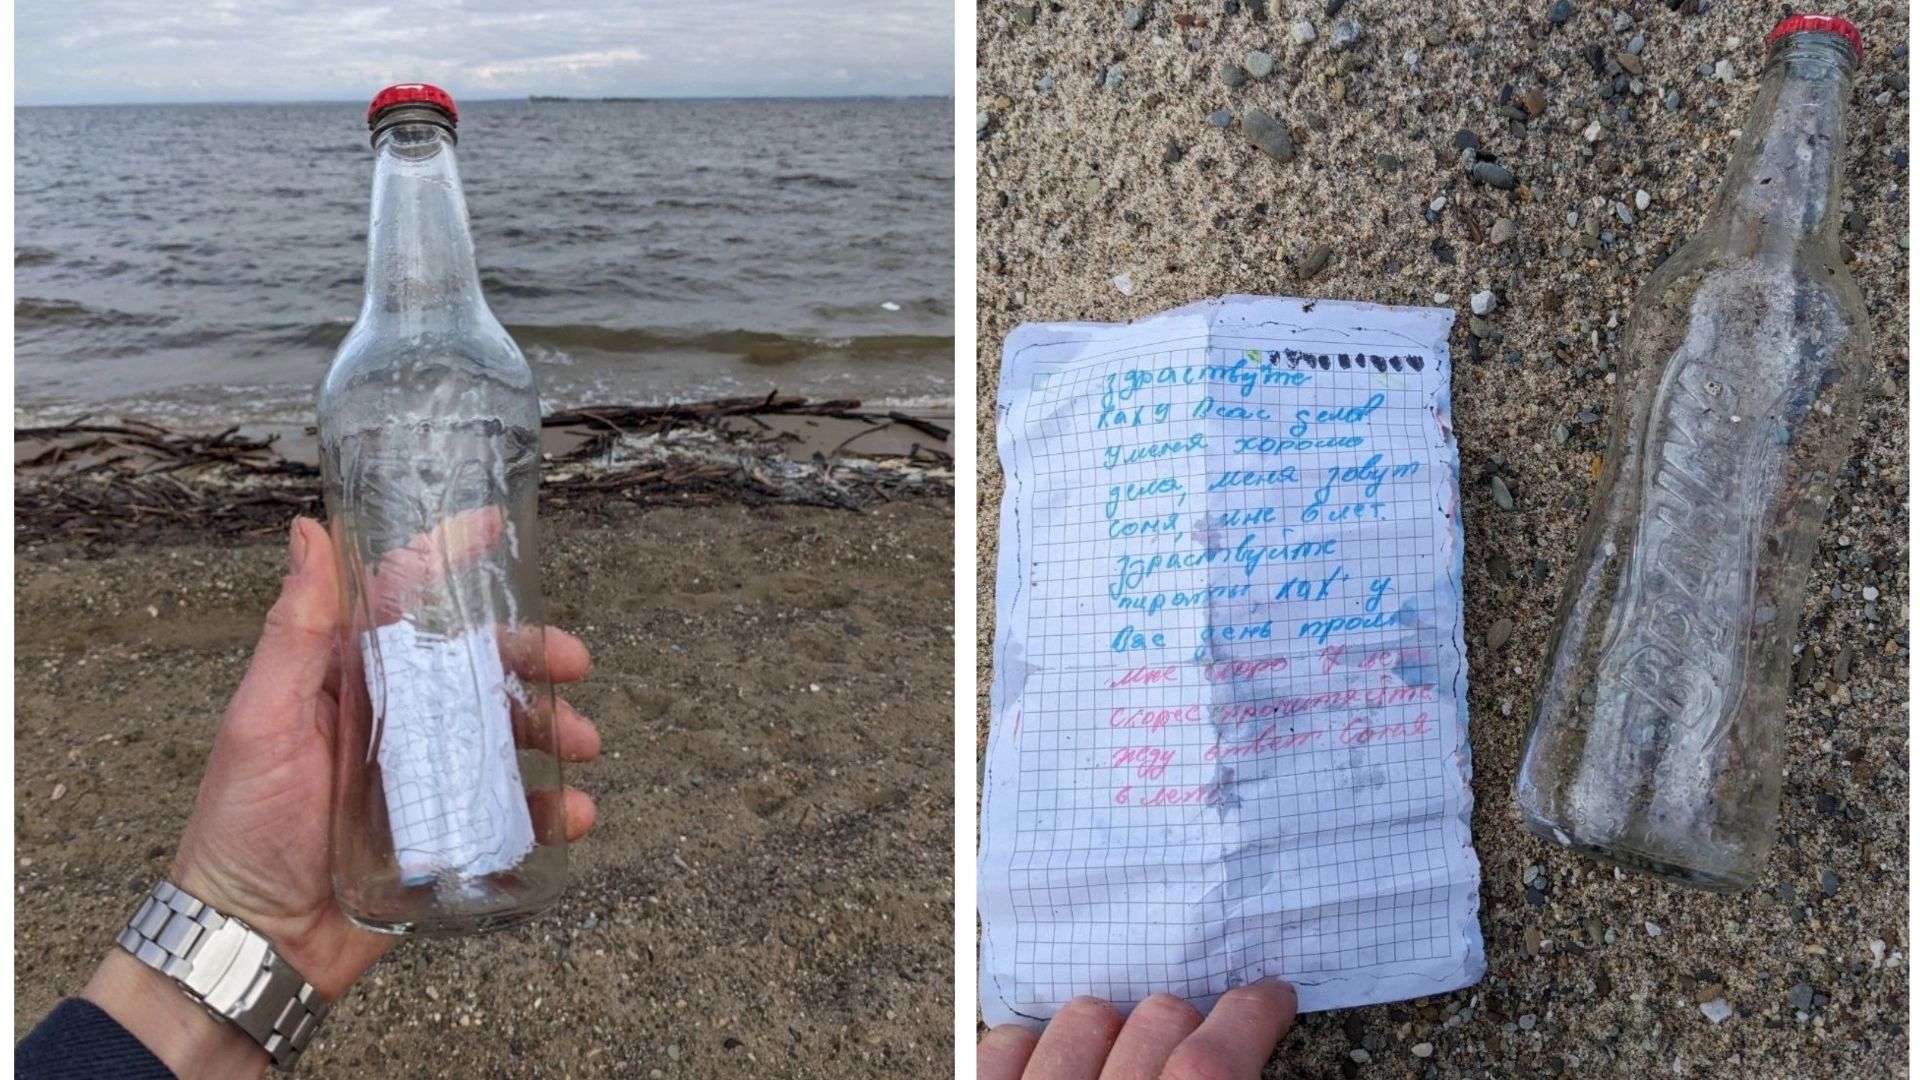 здраствуйте
Как у Вас дела
у меня хорошо
дела, меня зовут
Соня, мне 6 лет.
здраствуйте
пираты, как у
Вас день прошл
мне скоро 7 лет
скорее прочитяйте
жду ответ. Соня
6 лет